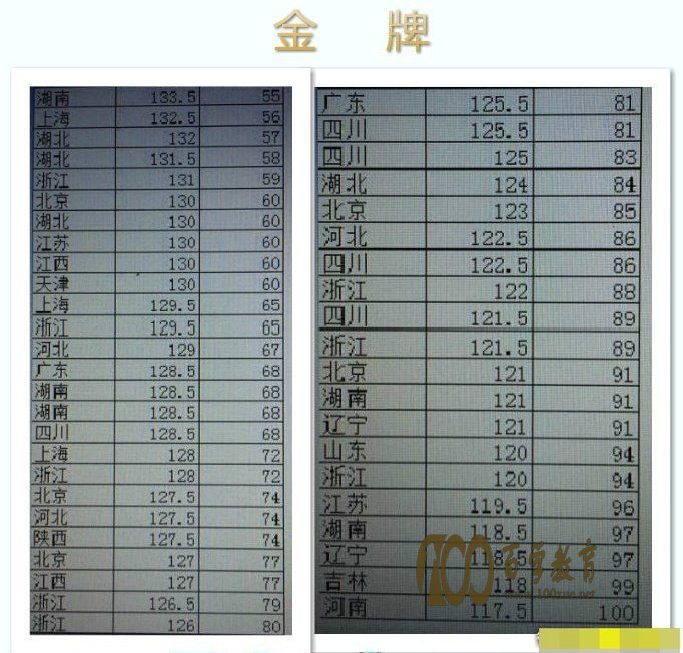 金 牌
湖南 133.5 55
上海 132.5 56
湖北 132 57
湖北 131.5 58
浙江 131 59
北京 130 60
湖北 130 60
江苏 130 60
江西 130 60
天津 130 60
上海 129.5 65
浙江 129.5 65
河北 129 67
广东 128.5 68
湖南 128.5 68
湖南 128.5 68
四川 128.5 68
上海 128 72
浙江 128 72
北京 127.5 74
河北 127.5 74
陕西 127.5 74
北京 127 77
江西 127 77
浙江 126.5 79
浙江 126 80
广东 125.5 81
四川 125.5 81
四川 125 83
湖北 124 84
北京 123 85
河北 122.5 86
四川 122.5 86
浙江 122 88
四川 121.5 89
浙江 121.5 89
北京 121 91
湖南 121 91
辽宁 121 91
山东 120 94
浙江 120 94
江苏 119.5 96
湖南 118.5 97
辽宁 118.5 97
吉林 118 99
河南 117.5 100
100百学教育
100xue.net